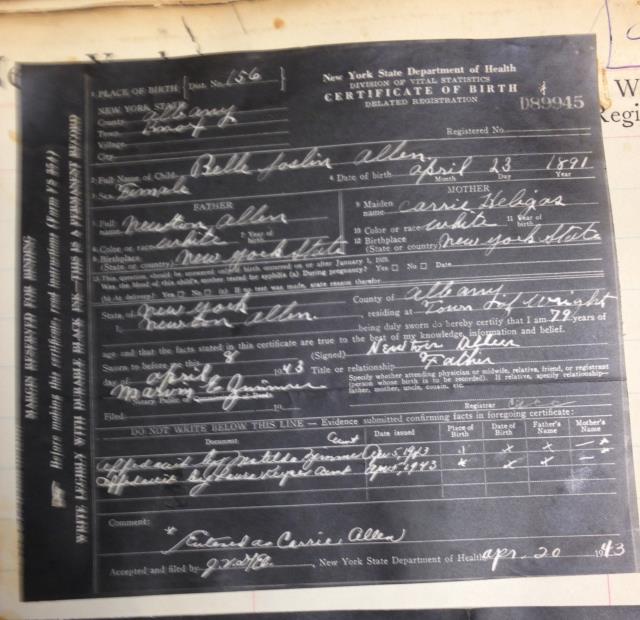 1. PLACE OF BIRTH { Dist. No. 156 }
New York State Department of Health
DIVISION OF VITAL STATISTICS
CERTIFICATE OF BIRTH
DELAYED REGISTRATION
D89945
NEW YORK STATE
County Albany
Town Knox
Village
City
Registered No.
2. Full Name of Child Belle Joslin Allen
3. Sex Female
4. Date of birth April 23 1891
Month Day Year
FATHER
MOTHER
5. Full name Newton Allen
9. Maiden name Carrie
6. Color or race white 7. Year of birth
10. Color or race white 11. Year of birth
8. Birthplace (State or country) New York State
12. Birthplace (State or country) New York State
13. This question should be answered only if birth occurred on or after January 1, 1939.
Was the blood of this child's mother tested for syphilis (a) During pregnancy? Yes No Date
(b) At delivery? Yes No (c) If no test was made, state reason therefor
State of New York County of Albany
I, Newton Allen, residing at Town of Wright
being duly sworn do hereby certify that I am 79 years of
age and that the facts stated in this certificate are true to the best of my knowledge, information and belief.
Sworn to before me this 8 (Signed) Newton Allen
day of April 1943 Title or relationship Father
Marvin E
Specify whether attending physician or midwife, relative, friend, or registrant
(person whose birth is to be recorded). If relative, specify relationship—
father, mother, uncle, cousin, etc.
Filed 19
Registrar
DO NOT WRITE BELOW THIS LINE — Evidence submitted confirming facts in foregoing certificate:
Document Date issued Place of Birth Date of Birth Father's Name Mother's Name
Aunt
Affidavit by Matilda Apr 5, 1943 x x x *
Affidavit by Aunt Apr 5, 1943 x x x
Comment:
* Entered as Carrie Allen
Accepted and filed by , New York State Department of Health Apr. 20 1943
MARGIN RESERVED FOR BINDING
Before making this certificate, read instructions (Form VS 35A)
WRITE LEGIBLY WITH DURABLE BLACK INK—THIS IS A PERMANENT RECORD
W
Regi